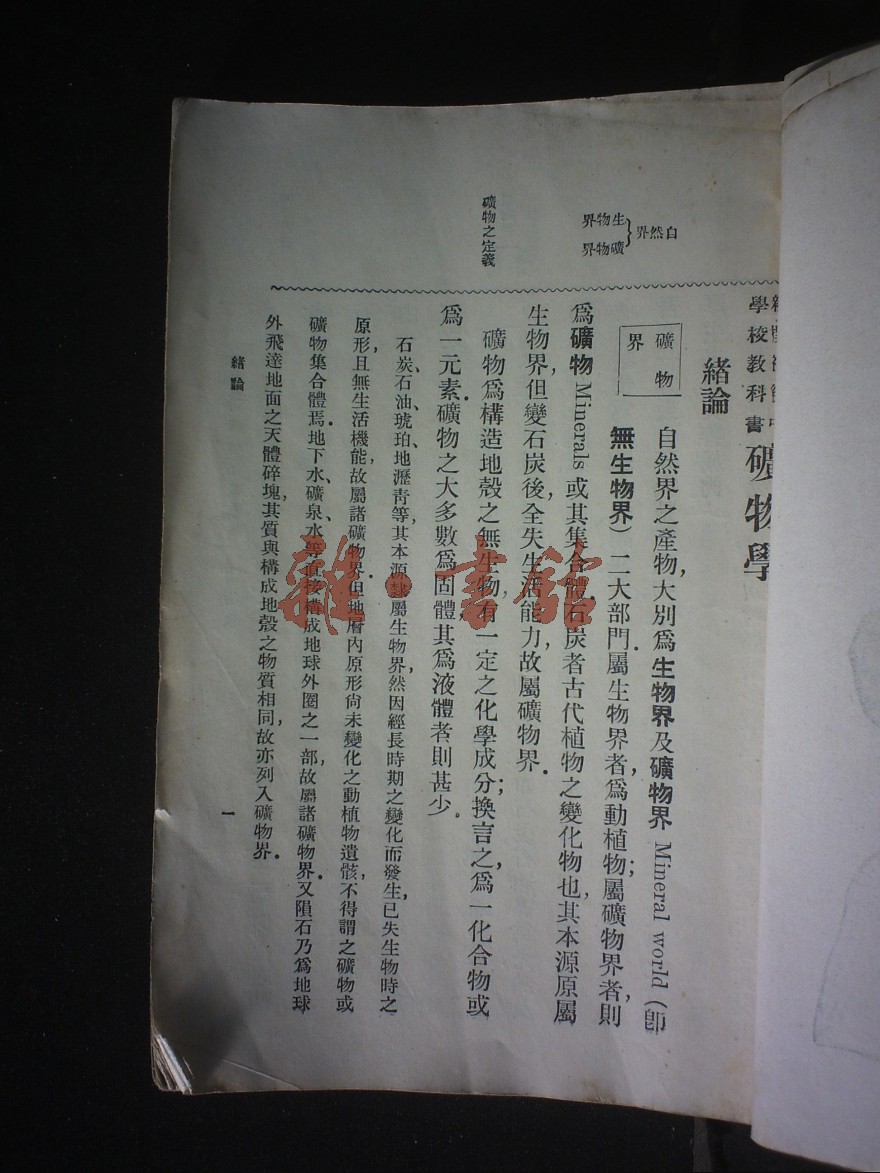 學校教科書 礦物學
緒論
自然界
生物界
礦物界
礦物界
自然界之產物，大別爲生物界及礦物界 Mineral world（卽
無生物界）二大部門．屬生物界者，爲動植物；屬礦物界者，則
爲礦物 Minerals 或其集合體．石炭者古代植物之變化物也，其本源原屬
生物界，但變石炭後，全失生活能力，故屬礦物界．
礦物之定義
礦物爲構造地殼之無生物，有一定之化學成分；換言之，爲一化合物或
爲一元素．礦物之大多數爲固體，其爲液體者則甚少．
石炭、石油、琥珀、地瀝靑等，其本源隸屬生物界，然因經長時期之變化而發生，已失生物時之
原形，且無生活機能，故屬諸礦物界．但地層內原形尙未變化之動植物遺骸，不得謂之礦物或
礦物集合體焉．地下水、礦泉水等直接構成地球外圈之一部，故屬諸礦物界．又隕石乃爲地球
外飛達地面之天體碎塊，其質與構成地殼之物質相同，故亦列入礦物界．
緒論
一
雜·書館